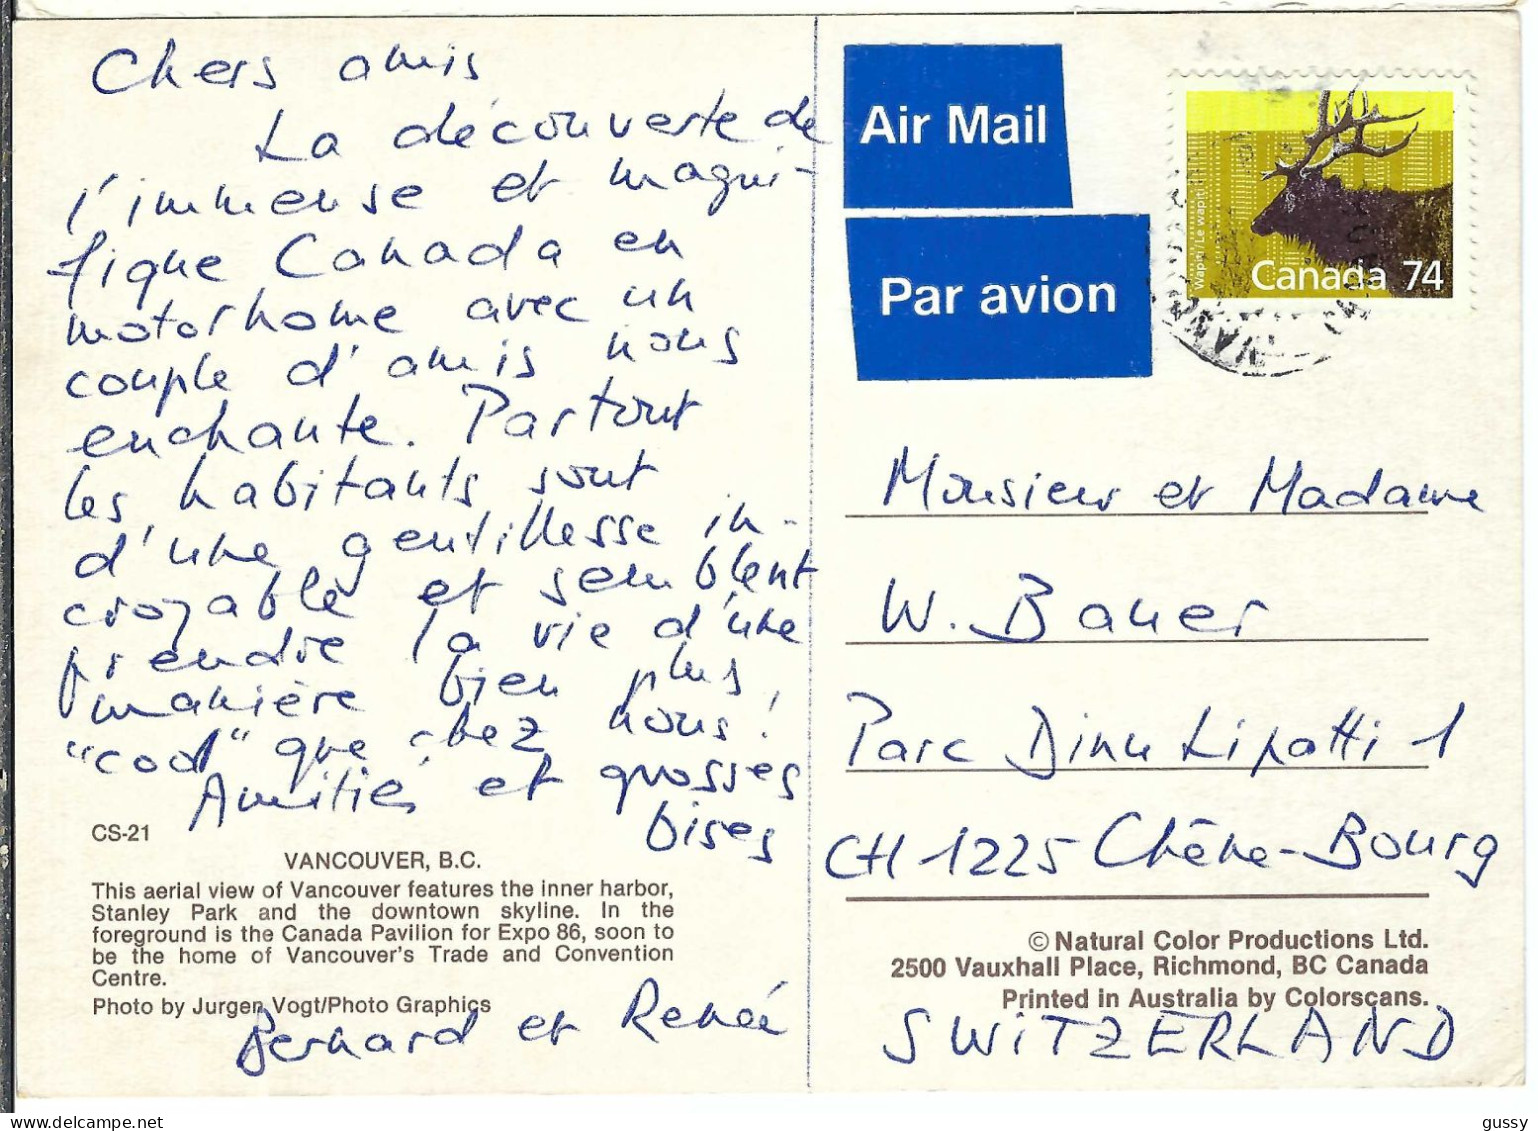 Chers amis
La découverte de
l'immense et magni-
fique Canada en
motorhome avec un
couple d'amis nous
enchante. Partout
les habitants sont
d'une gentillesse in-
croyable et semblent
prendre la vie d'une
manière bien plus
"cool" que chez nous!
Amitiés et grosses
bises
CS-21
VANCOUVER, B.C.
This aerial view of Vancouver features the inner harbor,
Stanley Park and the downtown skyline. In the
foreground is the Canada Pavilion for Expo 86, soon to
be the home of Vancouver's Trade and Convention
Centre.
Photo by Jurgen Vogt/Photo Graphics
Bernard et Renée
Air Mail
Par avion
Wapiti / Le wapiti
Canada 74
Monsieur et Madame
W. Bauer
Parc Dinu Lipatti 1
CH 1225 Chêne-Bourg
© Natural Color Productions Ltd.
2500 Vauxhall Place, Richmond, BC Canada
Printed in Australia by Colorscans.
SWITZERLAND
gussy